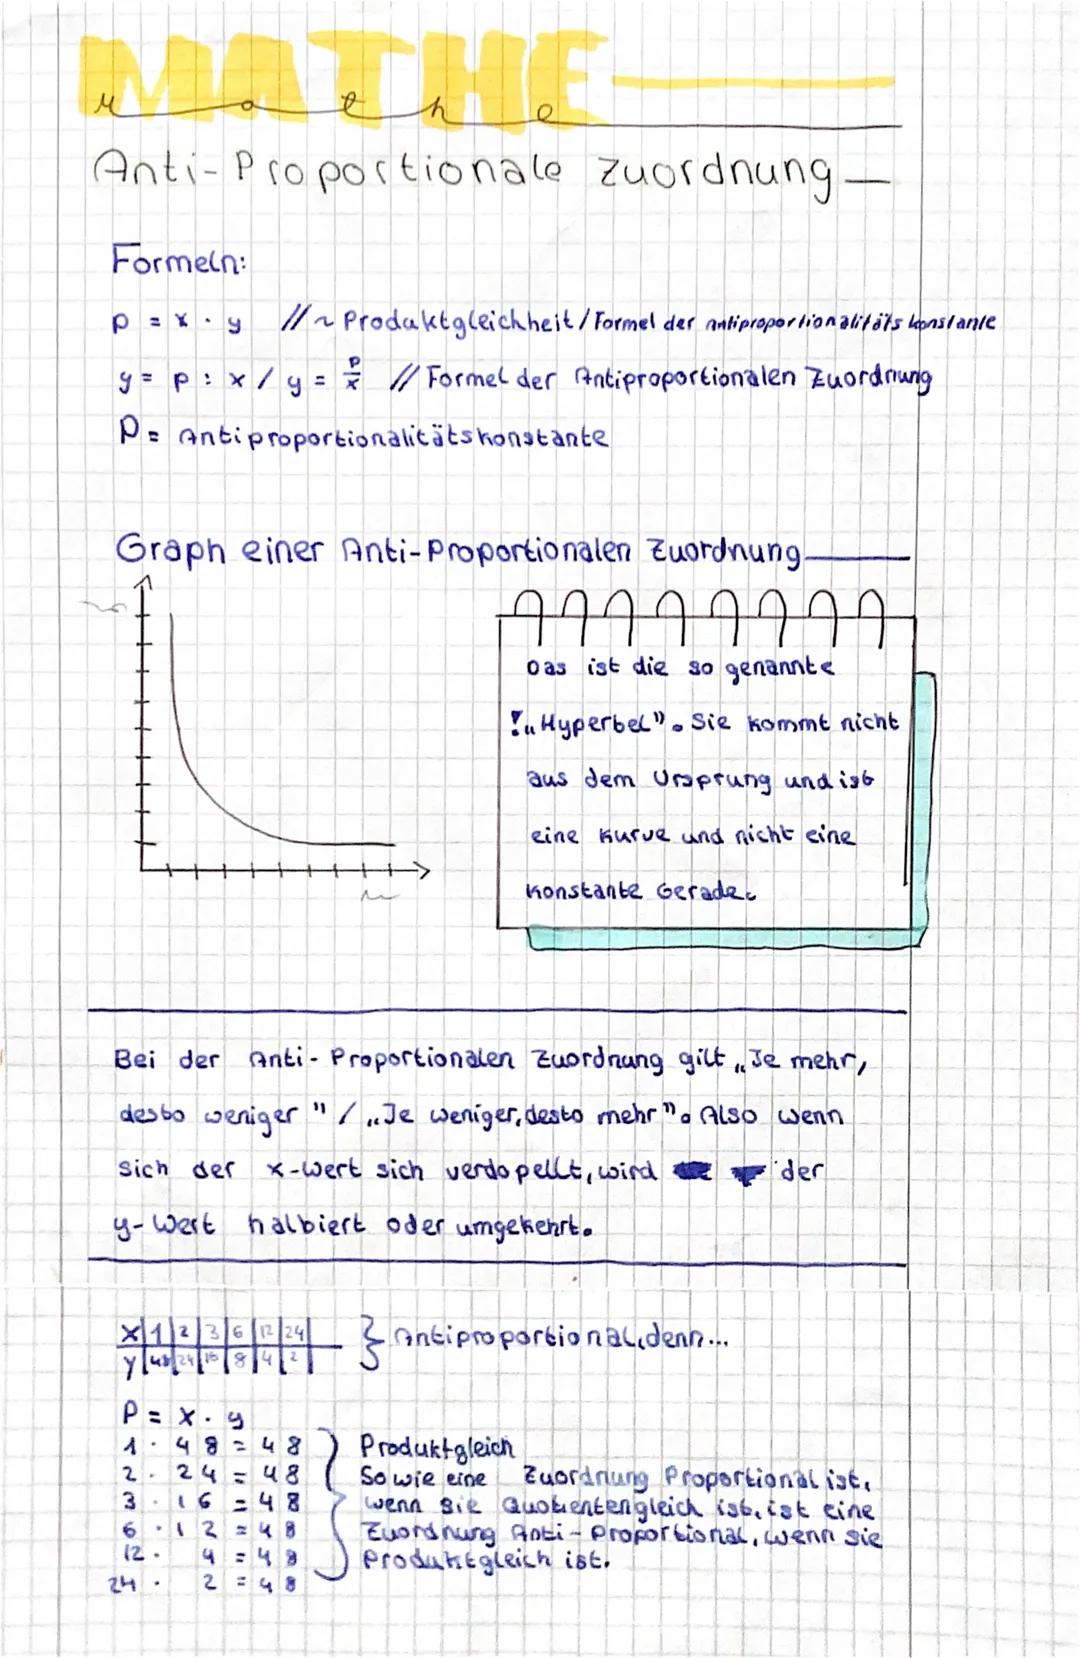 MATHE
mathe
Anti-Proportionale Zuordnung
Formeln:
p = x · y // ~ Produktgleichheit / Formel der antiproportionalitäts konstante
y = p : x / y = p/x // Formel der Antiproportionalen Zuordnung
P = Antiproportionalitätskonstante
Graph einer Anti-Proportionalen Zuordnung
Das ist die so genannte
! „Hyperbel". Sie kommt nicht
aus dem Ursprung und ist
eine Kurve und nicht eine
konstante Gerade.
Bei der Anti-Proportionalen Zuordnung gilt „Je mehr,
desto weniger" / „Je weniger, desto mehr". Also wenn
sich der x-Wert sich verdopellt, wird der
y-Wert halbiert oder umgekehrt.
x | 1 | 2 | 3 | 6 | 12 | 24 | } Antiproportional, denn...
y | 48 | 24 | 16 | 8 | 4 | 2 |
P = x · y
1 · 48 = 48 Produktgleich
2 · 24 = 48 So wie eine Zuordnung Proportional ist,
3 · 16 = 48 wenn sie Quotientengleich ist, ist eine
6 · 12 = 48 Zuordnung Anti-Proportional, wenn sie
12 · 4 = 48 Produktgleich ist.
24 · 2 = 48